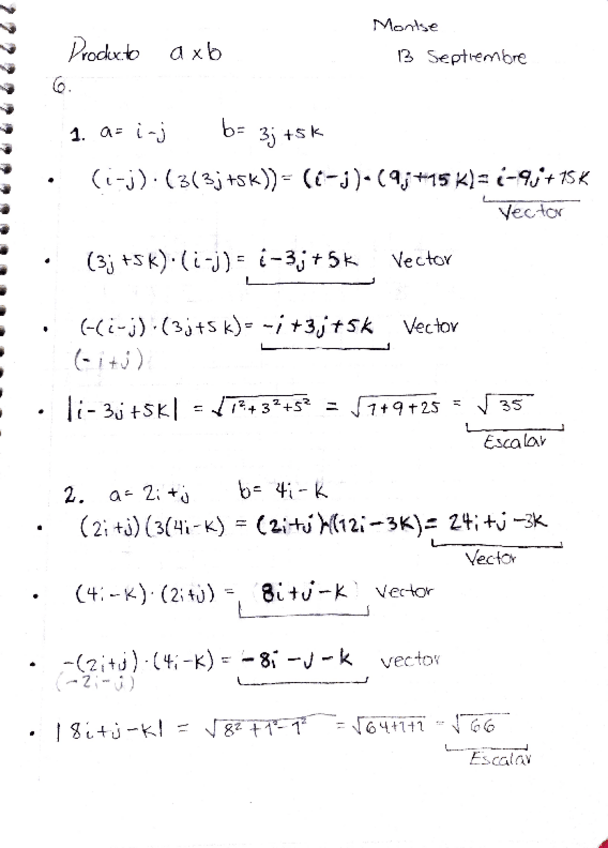 Montse
Producto a x b
13 Septiembre
6.
1. a= i-j b= 3j+5k
• (i-j)·(3(3j+5k))=(i-j)·(9j+15k)= i-9j+15k
Vector
• (3j+5k)·(i-j)= i-3j+5k Vector
• (-(i-j)·(3j+5k)= -i+3j+5k Vector
(-i+j)
• |i-3j+5k| = √1²+3²+5² = √1+9+25 = √35
Escalar
2. a= 2i+j b= 4i-k
• (2i+j)(3(4i-k) = (2i+j)·(12i-3k)= 24i+j-3k
Vector
• (4i-k)·(2i+j) = 8i+j-k Vector
• -(2i+j)·(4i-k) = -8i-j-k vector
(-2i-j)
• |8i+j-k| = √8²+1²-1² = √64+1+1 = √66
Escalar